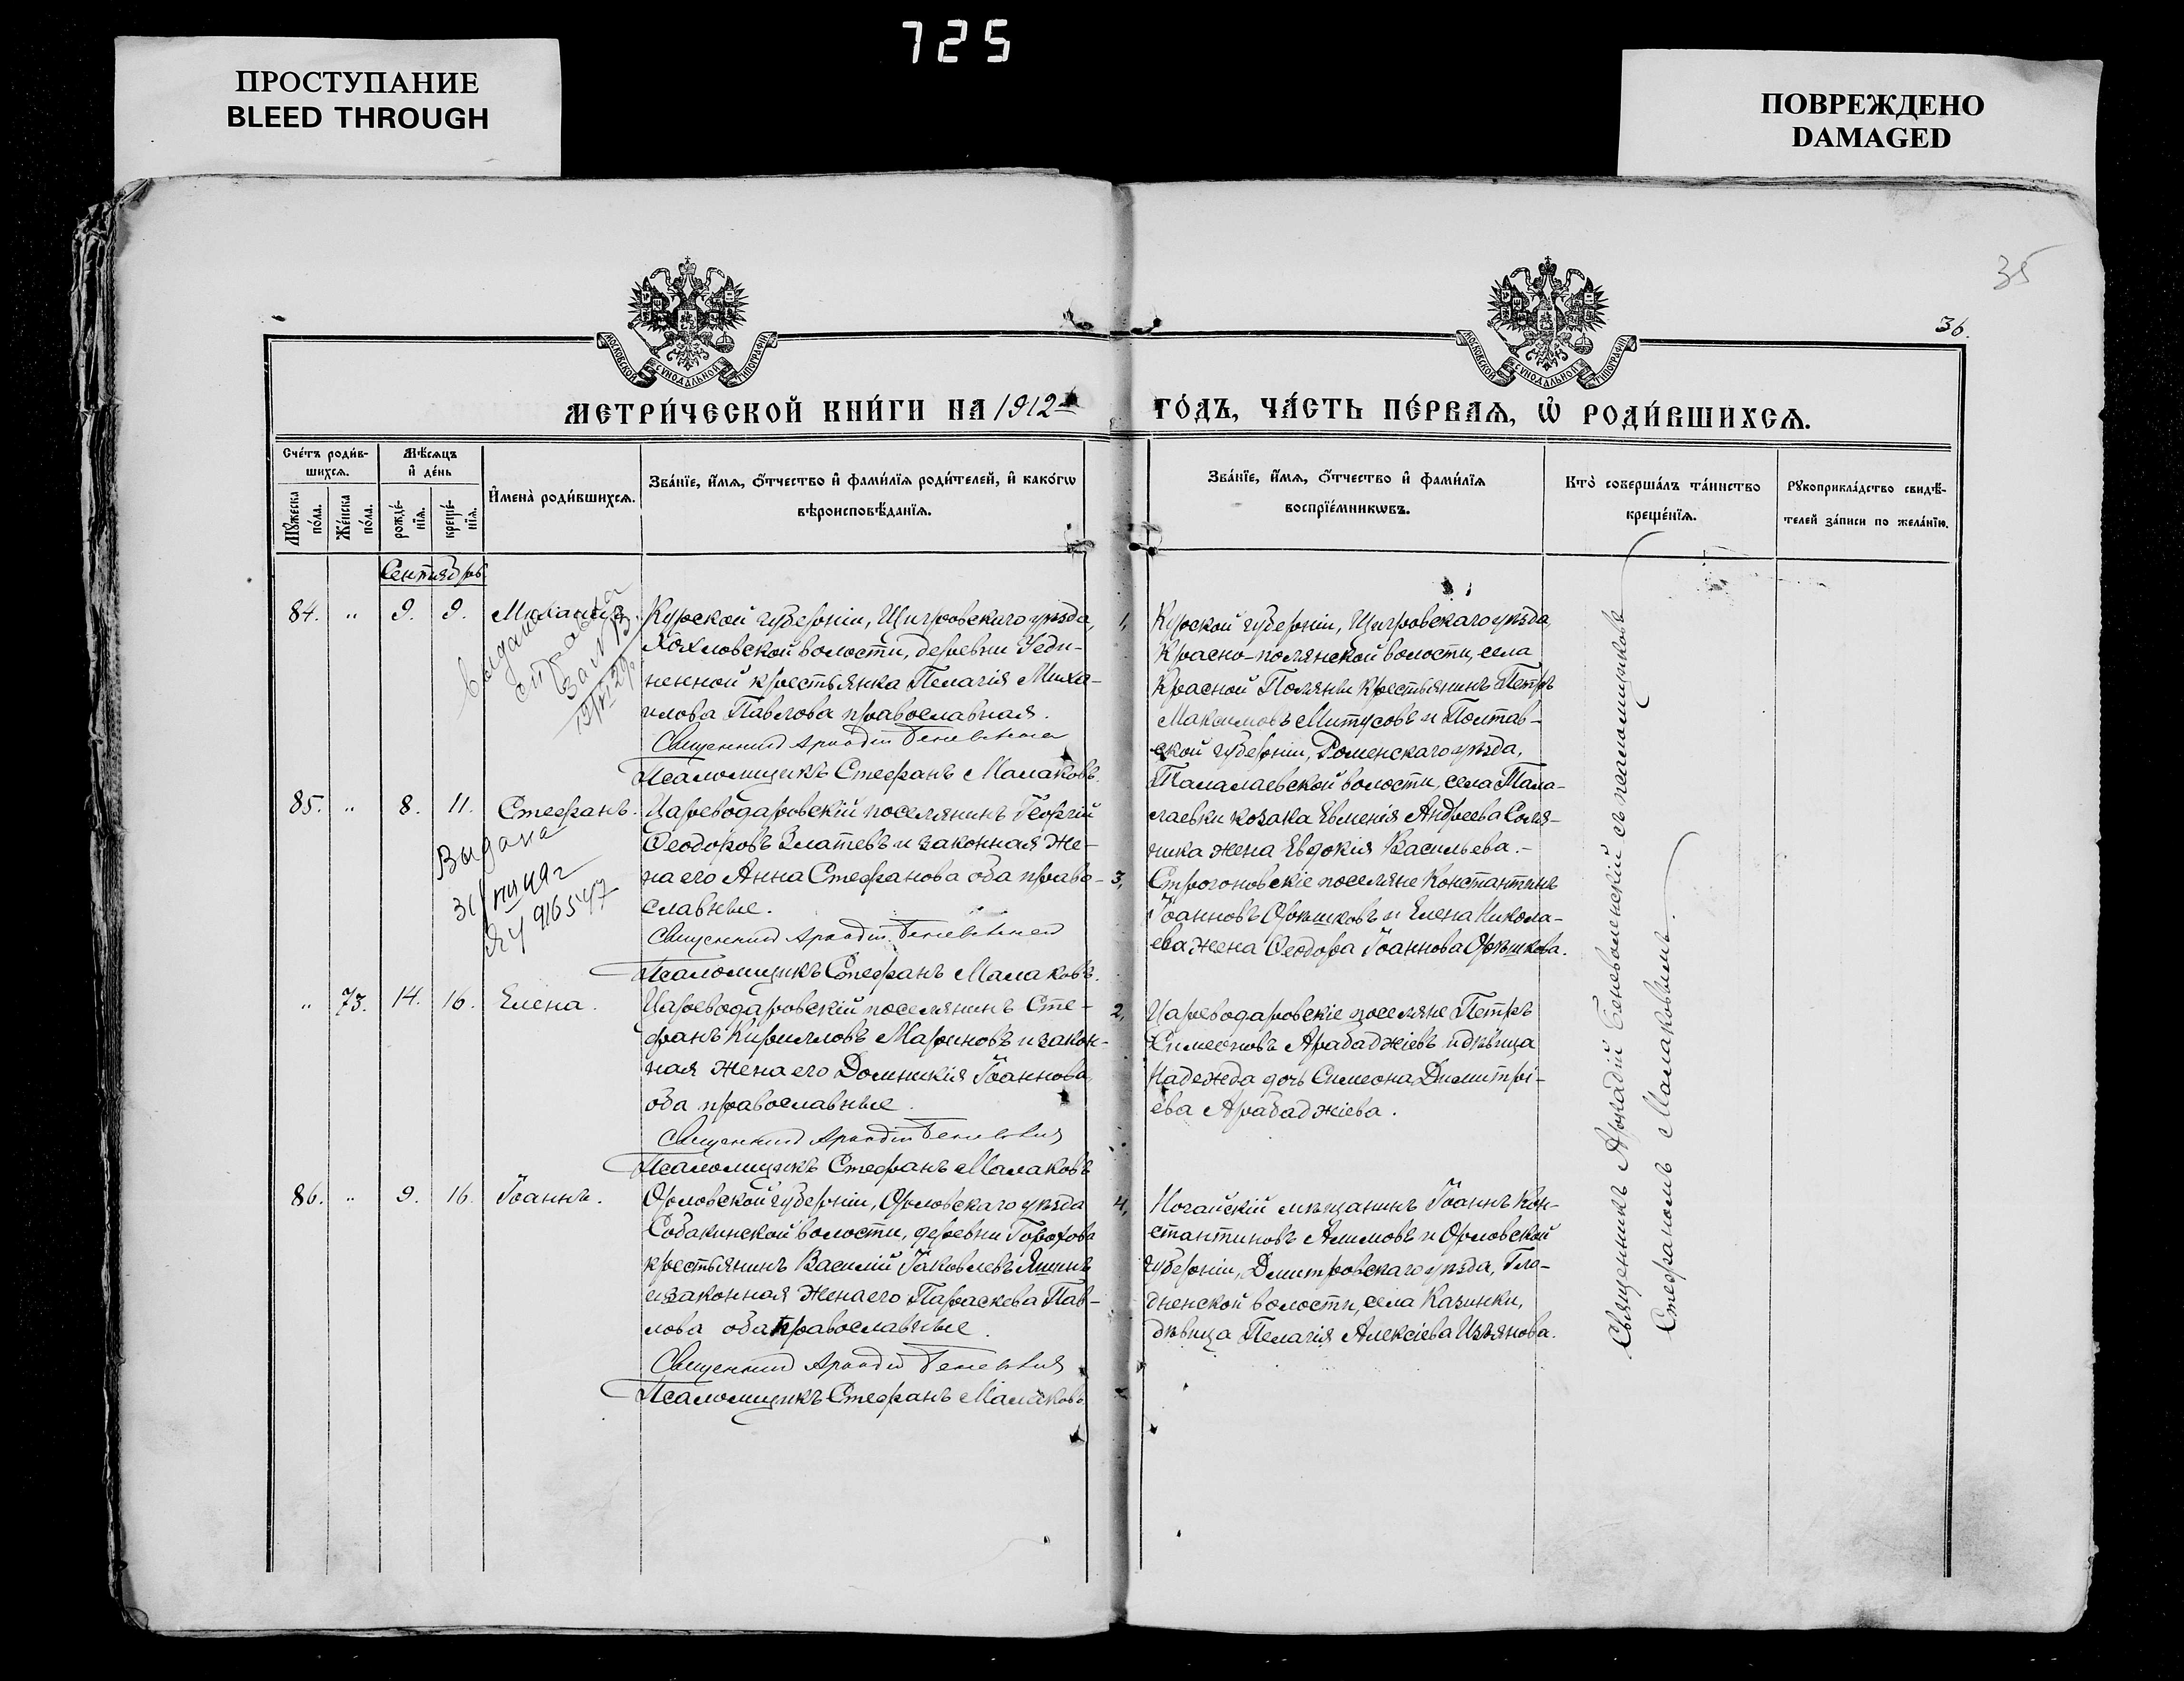 725
ПРОСТУПАНИЕ
BLEED THROUGH
ПОВРЕЖДЕНО
DAMAGED
35
36.
МОСКОВСКОЙ СѴНОДАЛЬНОЙ ТИПОГРАФІИ
МОСКОВСКОЙ СѴНОДАЛЬНОЙ ТИПОГРАФІИ
МЕТРИ́ЧЕСКОЙ КНИ́ГИ НА 1912 ГО́ДЪ, ЧА́СТЬ ПЕ́РВАѦ, Ѡ҆ РОДИ́ВШИХСѦ.
Сче́тъ роди́в-
шихсѧ.
Мѣ́сѧцъ
и҆ де́нь
Мꙋ́жеска
по́ла.
Же́нска
по́ла.
рожде́-
нїѧ.
креще́-
нїѧ.
И҆мена̀ роди́вшихсѧ.
Зва́нїе, и҆́мѧ, ѻ҆́тчество и҆ фами́лїѧ роди́телей, и҆ како́гѡ
вѣроисповѣ́данїѧ.
Зва́нїе, и҆́мѧ, ѻ҆́тчество и҆ фами́лїѧ
воспрїе́мникѡвъ.
Кто̀ соверша́лъ та́инство
креще́нїѧ.
Рꙋкоприкла́дство свидѣ́-
телей за́писи по жела́нїю.
Сентябрь
84. " 9. 9.
Курской губерніи, Щигровскаго уѣзда,
Хохловской волости, деревни Уеди-
ненной крестьянка Пелагія Миха-
илова Павлова православная.
Священникъ Аркадій Беневоленскій
Псаломщикъ Стефанъ Малаковъ.
1, Курской губерніи, Щигровскаго уѣзда,
Красно-полянской волости, села
Красной Поляны крестьянинъ Петръ
Максимовъ Митусовъ и Полтав-
ской губерніи, Роменскаго уѣзда,
Талалаевской волости, села Тала-
лаевки козака Евменія Андреева
жена Евдокія Васильева.-
Выдана
справка
за № 13
85. " 8. 11. Стефанъ.
Цареводаровскій поселянинъ Георгій
Ѳеодоровъ Златевъ и законная же-
на его Анна Стефанова оба право-
славные.
Священникъ Аркадій Беневоленскій
Псаломщикъ Стефанъ Малаковъ.
3, Строгоновскіе поселяне Константинъ
Іоанновъ Орѣшковъ и Елена Никола-
ева жена Ѳеодора Іоаннова Орѣшкова.
Выдана
916547
" 73. 14. 16. Елена.
Цареводаровскій поселянинъ Сте-
фанъ Кирилловъ Мариновъ и закон-
ная жена его Домникія Іоаннова
оба православные.
Священникъ Аркадій Беневоленскій
Псаломщикъ Стефанъ Малаковъ
2, Цареводаровскіе поселяне Петръ
Симеоновъ Арабаджіевъ и дѣвица
Надежда дочь Симеона Димитрі-
ева Арабаджіева.
86. " 9. 16. Іоаннъ.
Орловской губерніи, Орловскаго уѣзда
Собакинской волости, деревни Горохова
крестьянинъ Василій Іаковлевъ Яшинъ
и законная жена его Параскева Пав-
лова оба православные.
Священникъ Аркадій Беневоленскій
Псаломщикъ Стефанъ Малаковъ
4, Ногайскій мѣщанинъ Іоаннъ Кон-
стантиновъ Алимовъ и Орловской
губерніи, Дмитровскаго уѣзда, Гло-
дненской волости, села Казинки,
дѣвица Пелагія Алексіева Изъянова.
Священникъ Аркадій Беневоленскій съ псаломщикомъ
Стефаномъ Малаковымъ.